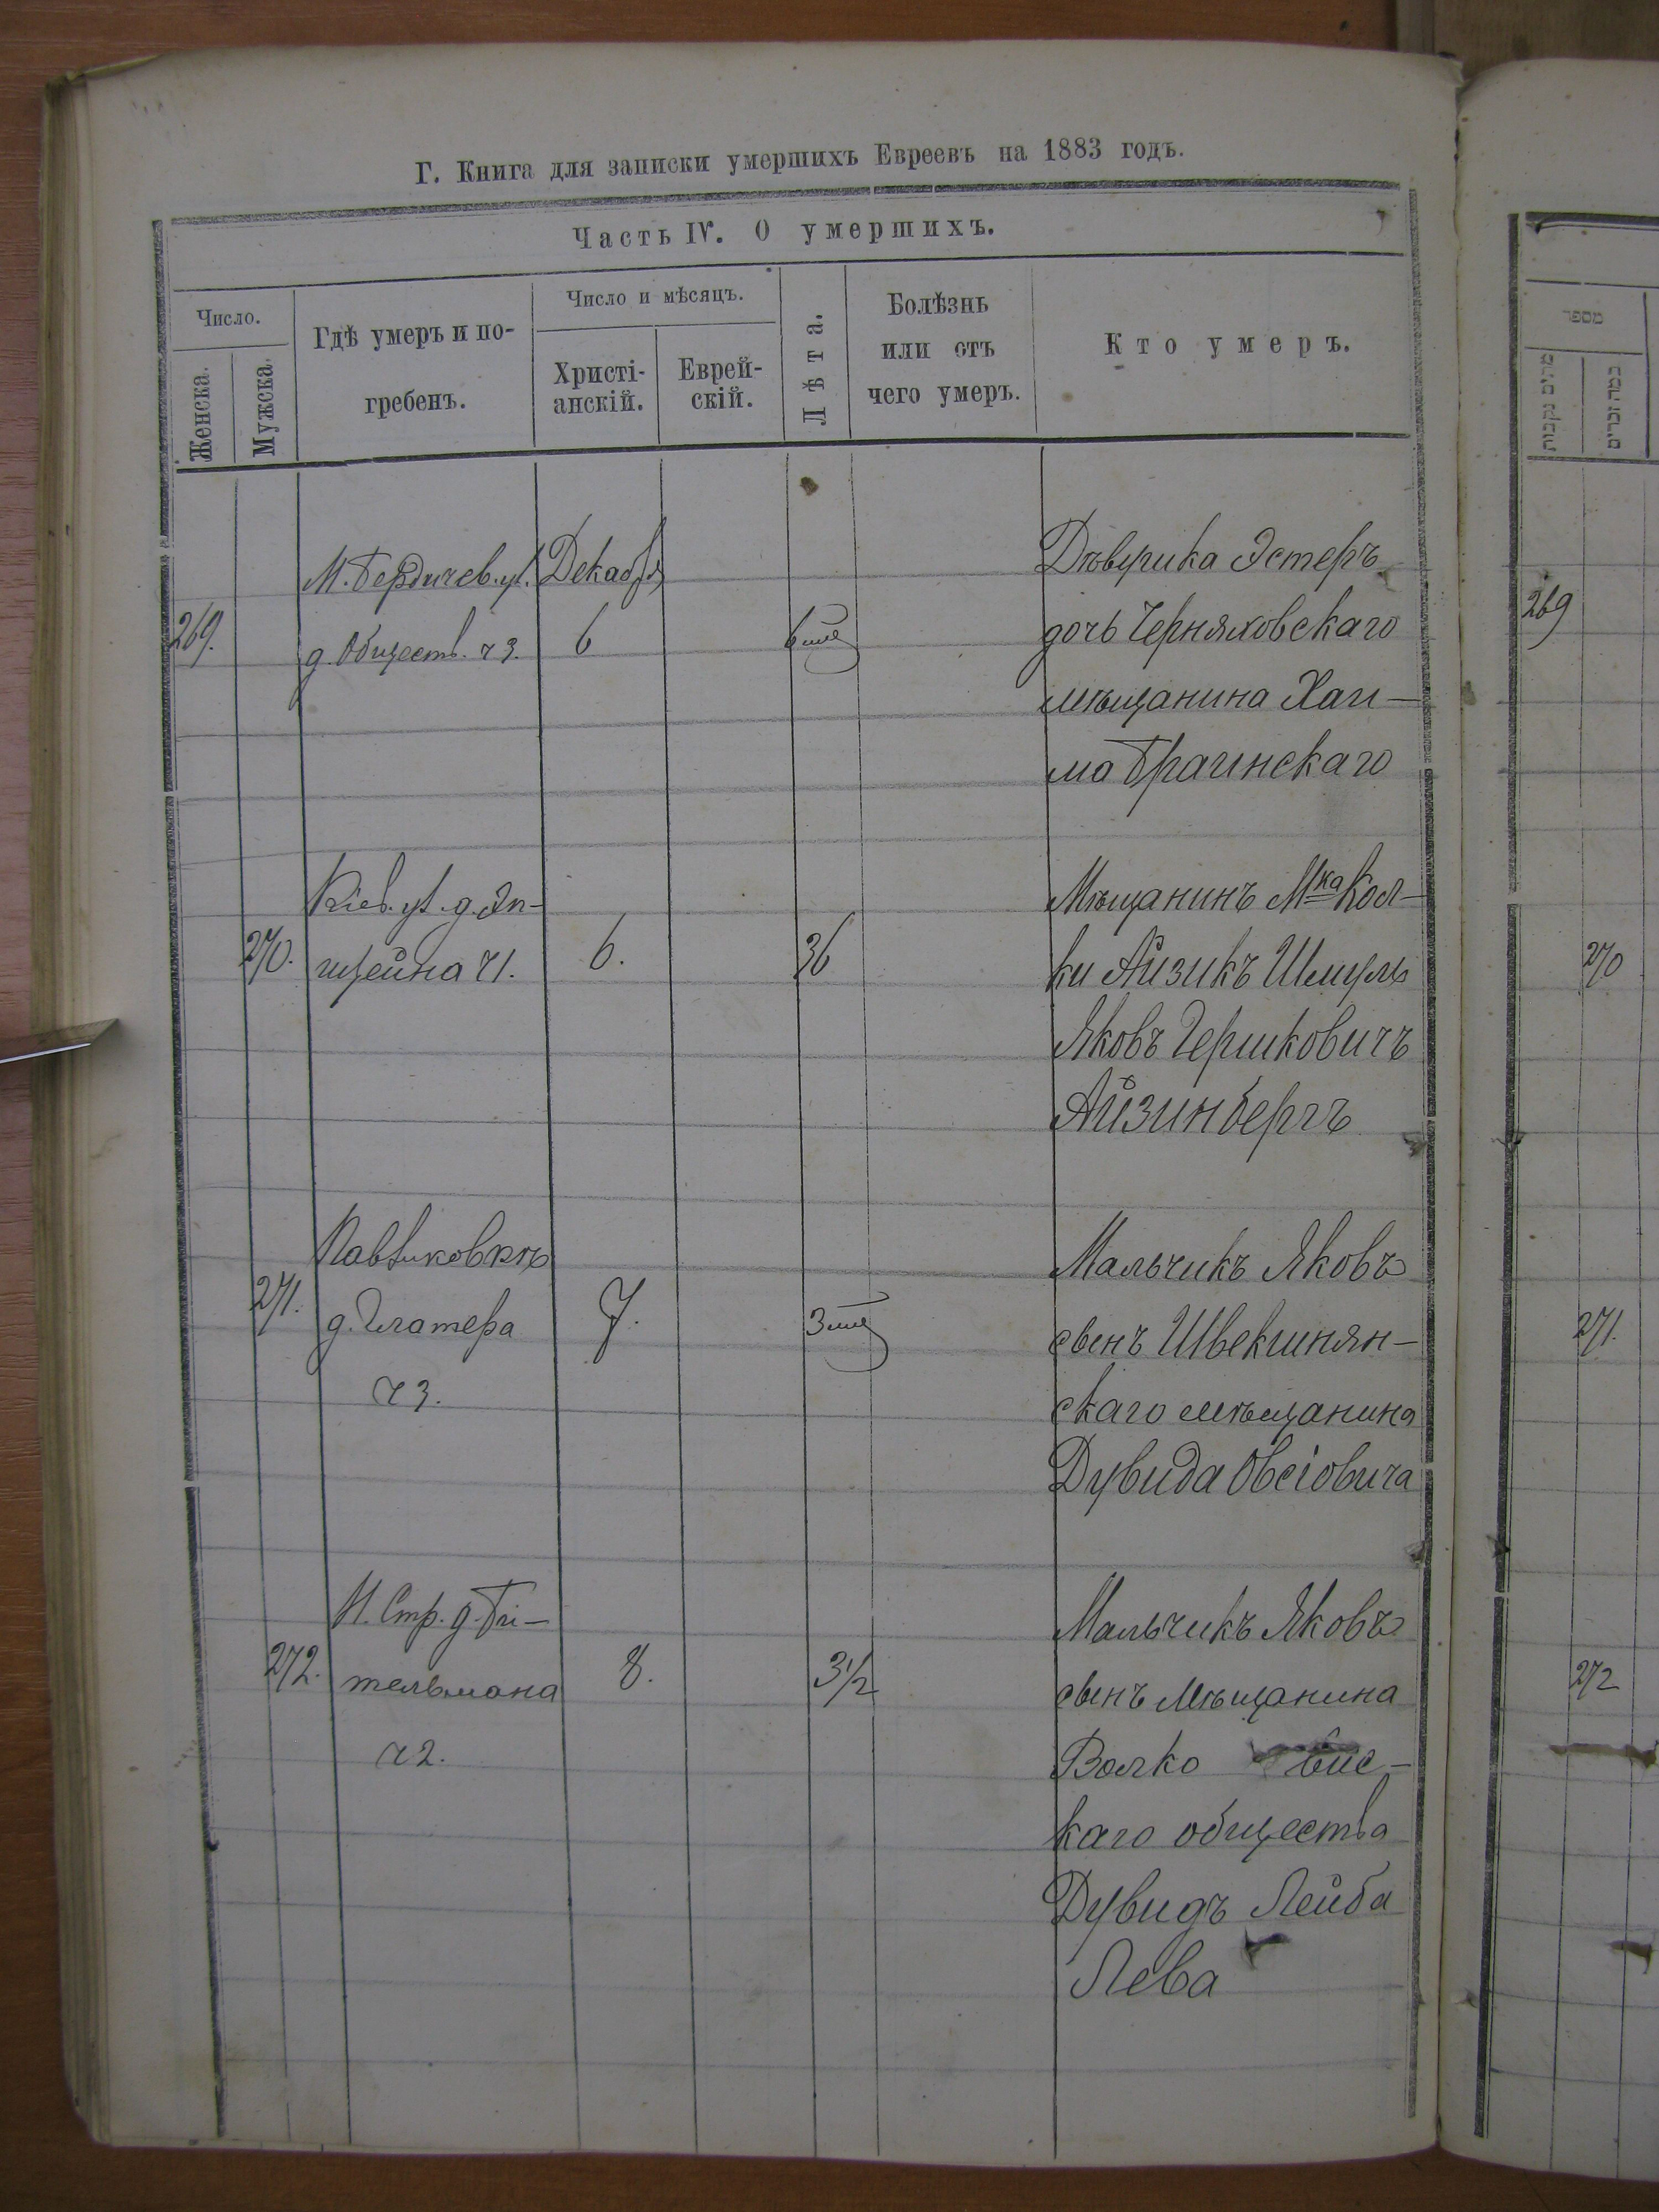 Г. Книга для записки умершихъ Евреевъ на 1883 годъ.
Часть IV. О умершихъ.
Число.
Женска.
Мужска.
Гдѣ умеръ и по-
гребенъ.
Число и мѣсяцъ.
Христі-
анскій.
Еврей-
скій.
Лѣта.
Болѣзнь
или отъ
чего умеръ.
Кто умеръ.
מספר
269.
М. Бердичев. ул.
д. Обществ. ч 3.
Декабря
6
6 мце
Дѣвушка Эстеръ
дочь Черняховскаго
мѣщанина Хаи-
ма Брагинскаго
269
270.
Кіев. ул. д. Эп-
щейна ч 1.
6.
36
Мѣщанинъ Мка Кол-
ки Айзикъ Шмуль
Яковъ Гершковичъ
Айзинбергъ
270
271.
д. Глатера
ч 3.
7.
3 мце
Мальчикъ Яковъ
сынъ Швекшнян-
скаго мѣщанина
Дувида Овсіовича
271.
272.
Н. Стр. д. Ги-
тельмана
ч 2.
8.
3 1/2
Мальчикъ Яковъ
сынъ Мѣщанина
Волко вис-
каго общества
Дувидъ Лейба
Лева
272